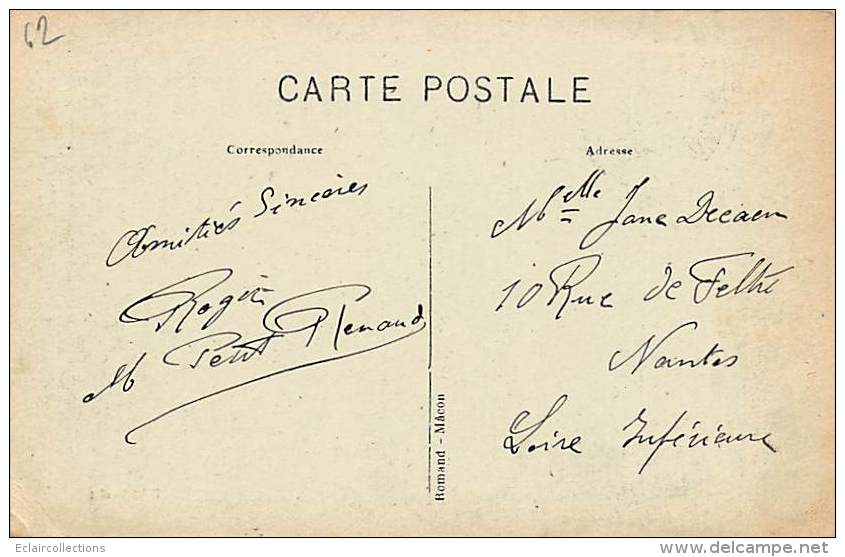 62
CARTE POSTALE
Correspondance
Amitiés Sincères
Roger
M Petit Renaud
Adresse
Melle Jane Decaen
10 Rue de Feltre
Nantes
Loire Inférieure
Romand - Mâcon
Eclaircollections
www.delcampe.net